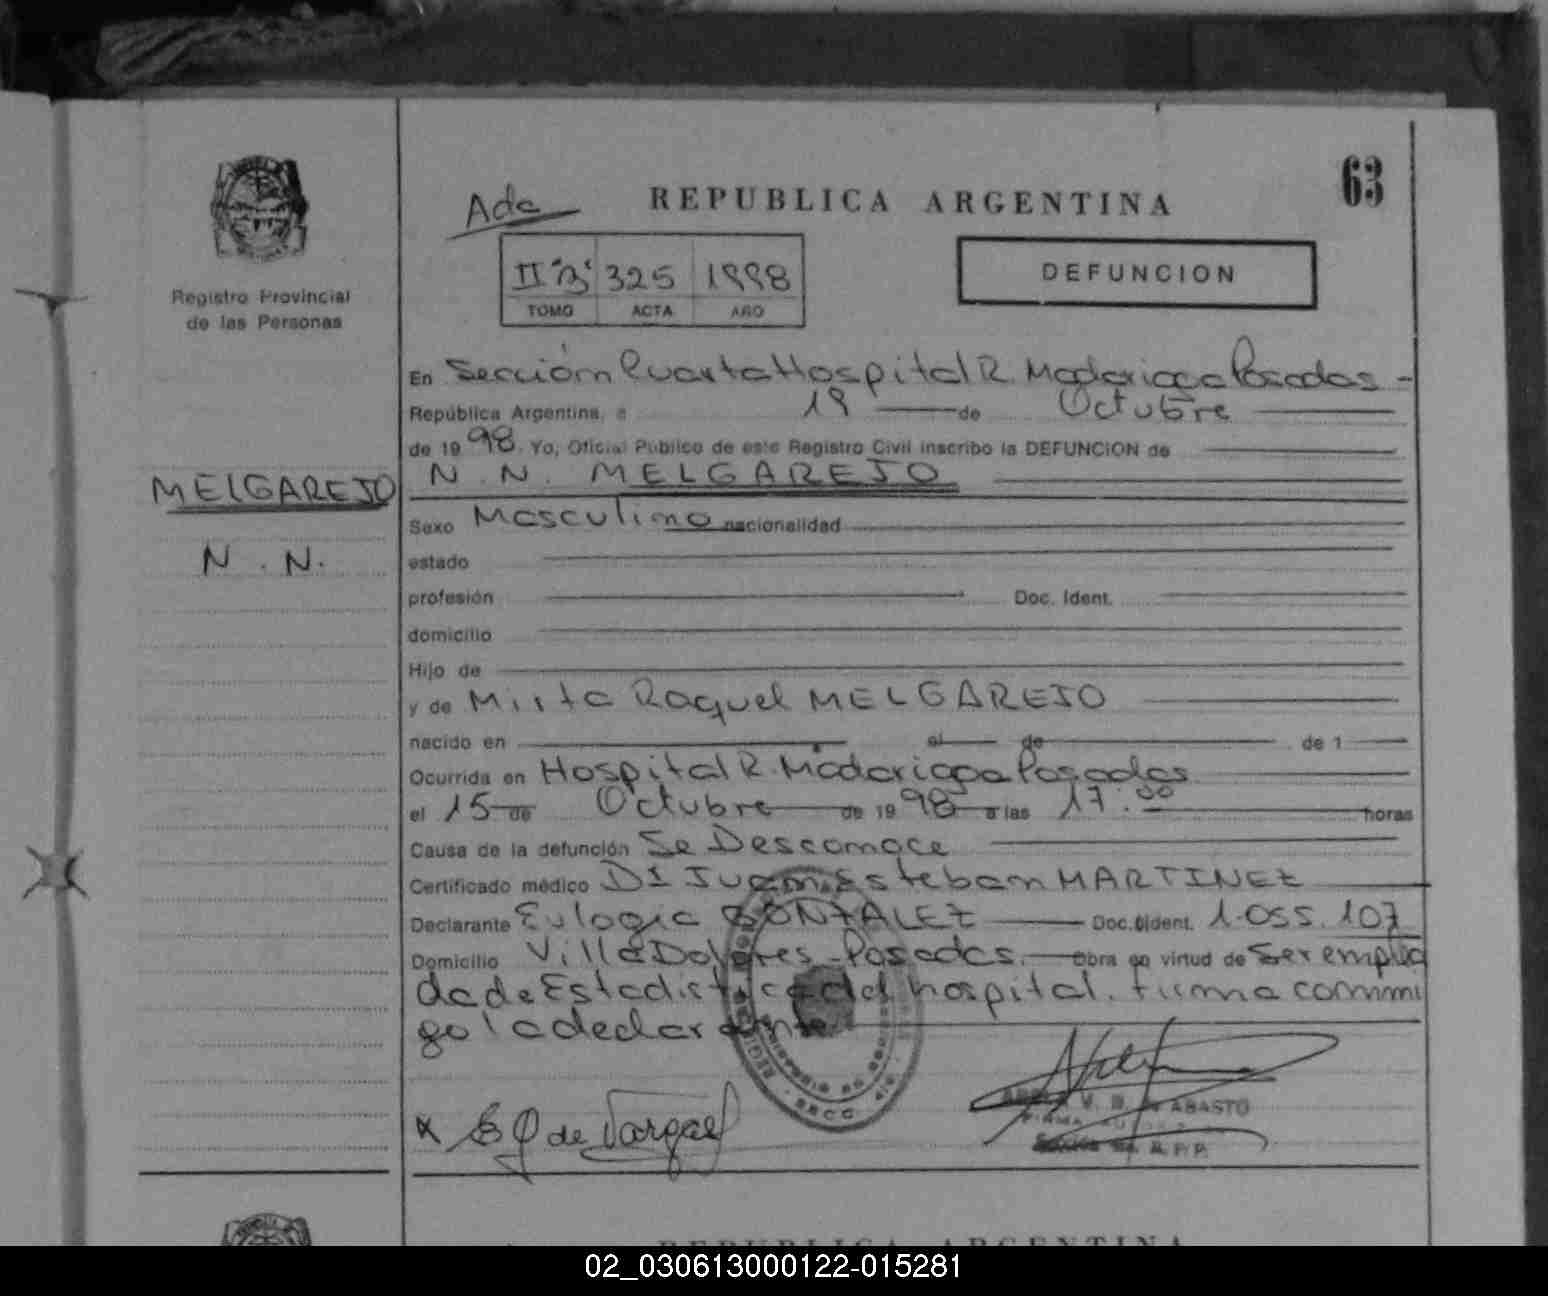 63
Ada
REPUBLICA ARGENTINA
Registro Provincial
de las Personas
II "B" 325 1998
TOMO ACTA AÑO
DEFUNCION
En Sección Cuarta Hospital R. Madariaga Posadas -
República Argentina, a 19 de Octubre
de 19 98. Yo, Oficial Público de este Registro Civil inscribo la DEFUNCION de
N. N. MELGAREJO
MELGAREJO
N. N.
Sexo Masculino nacionalidad
estado
profesión Doc. Ident.
domicilio
Hijo de
y de Mirta Raquel MELGAREJO
nacido en el de de 1
Ocurrida en Hospital R. Madariaga Posadas
el 15 de Octubre de 19 98 a las 17:00 horas
Causa de la defunción Se Desconoce
Certificado médico Dr Juan Esteban MARTINEZ
Declarante Eulogia GONZALEZ Doc. Ident. 1.055.107
Domicilio Villa Dolores - Posadas. Obra en virtud de Ser emplea
da de Estadistica del hospital. Firma conmi
go la declarante.
x E G de Vargas
V. B. ABASTO
FIRMA
R. P. P.
REPUBLICA ARGENTINA
02_030613000122-015281